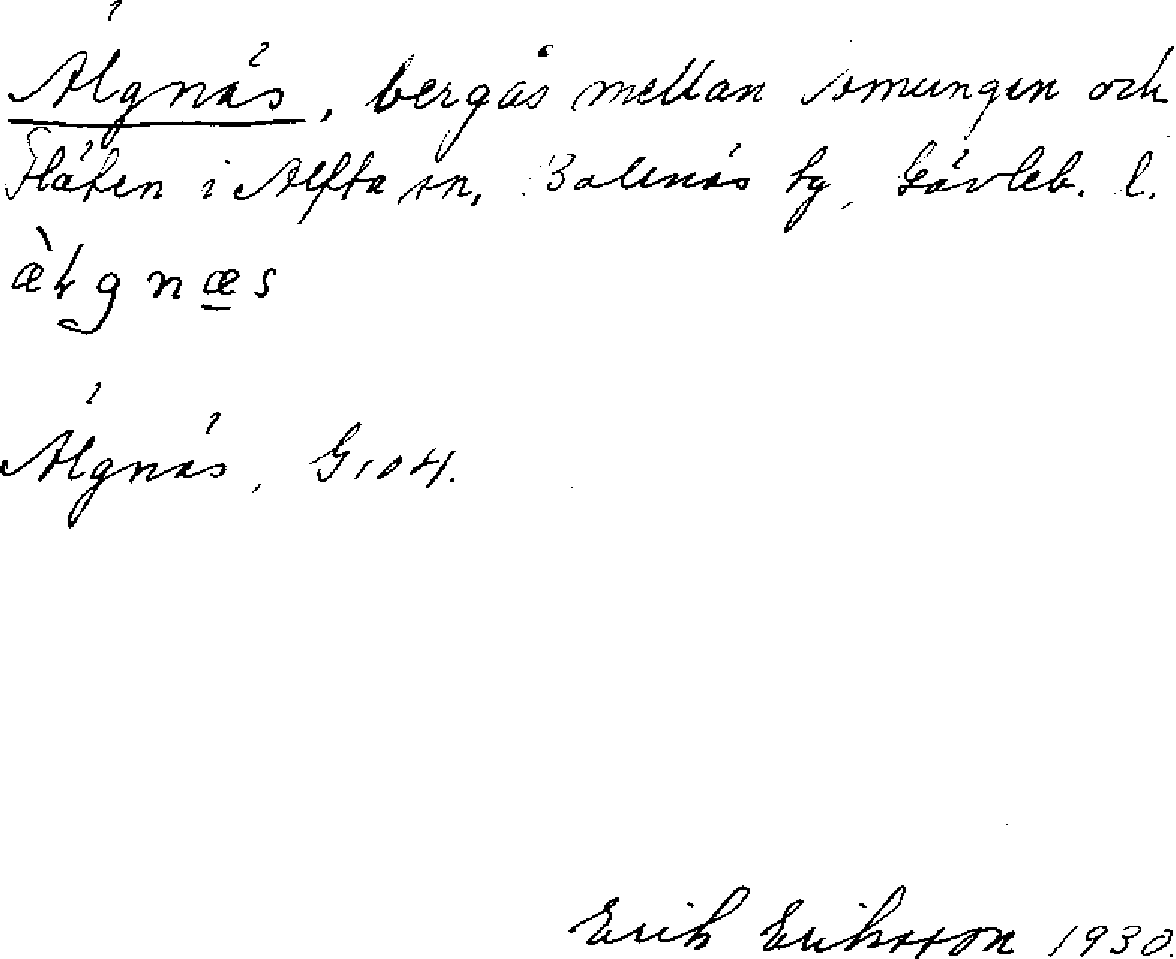 Älgnäs, bergås mellan Amungen och
Flåten i Alfta sn, Bollnäs tg, Gävleb. l.
æ̀ɫgnæs
Älgnäs, G104.
Erik Eriksson 1930.